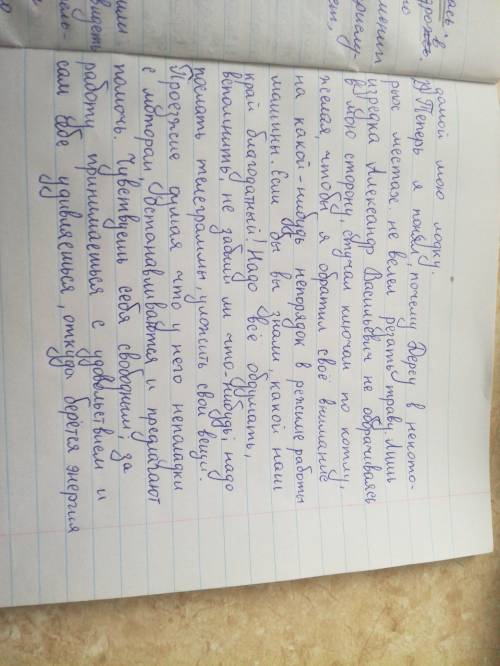 дамой мою лодку.
2) Теперь я понял, почему Дерсу в некото-
рых местах не велел резать траву. Лишь
изредка Александр Васильевич не оборачиваясь
в мою сторону, стучал ключом по котлу,
желая, чтобы я обратил своё внимание
на какой-нибудь непорядок в режиме работы
машины. Если бы вы знали, какой наш
край благодатный! Надо всё обдумать,
вспомнить, не забыл ли что-нибудь, надо
послать телеграммы, уложить свои вещи.
Проезжие думая что у него неполадки
с мотором, останавливаются и предлагают
помочь. Чувствуешь себя свободным; за
работу принимаешься с удовольствием и
сам себе удивляешься, откуда берётся энергия